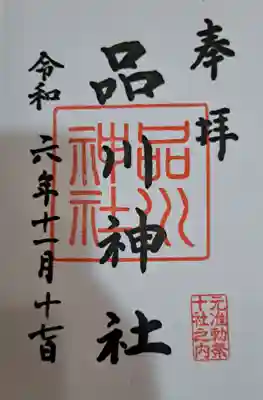 奉拝
品川神社
品川神社
元准勅祭
十社之内
令和 六年十一月十七日